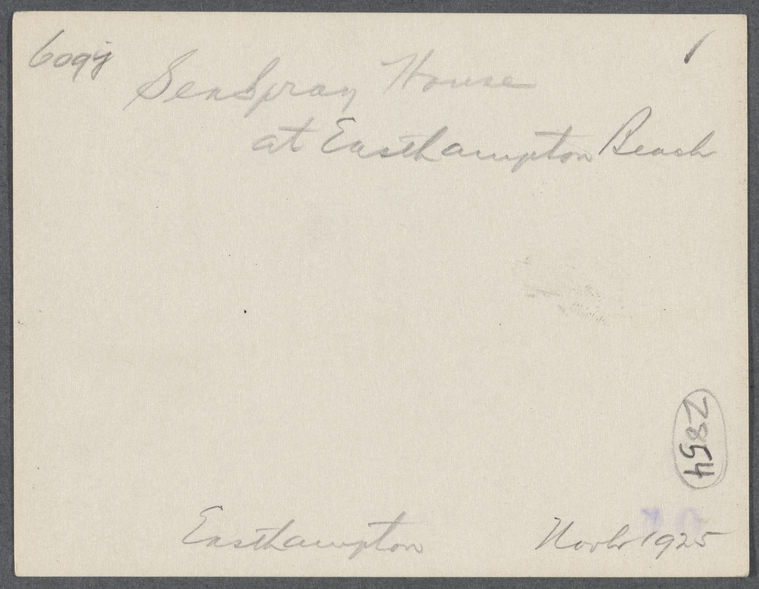 1
Sea Spray House
at Easthampton Beach
2854
Easthampton
1925